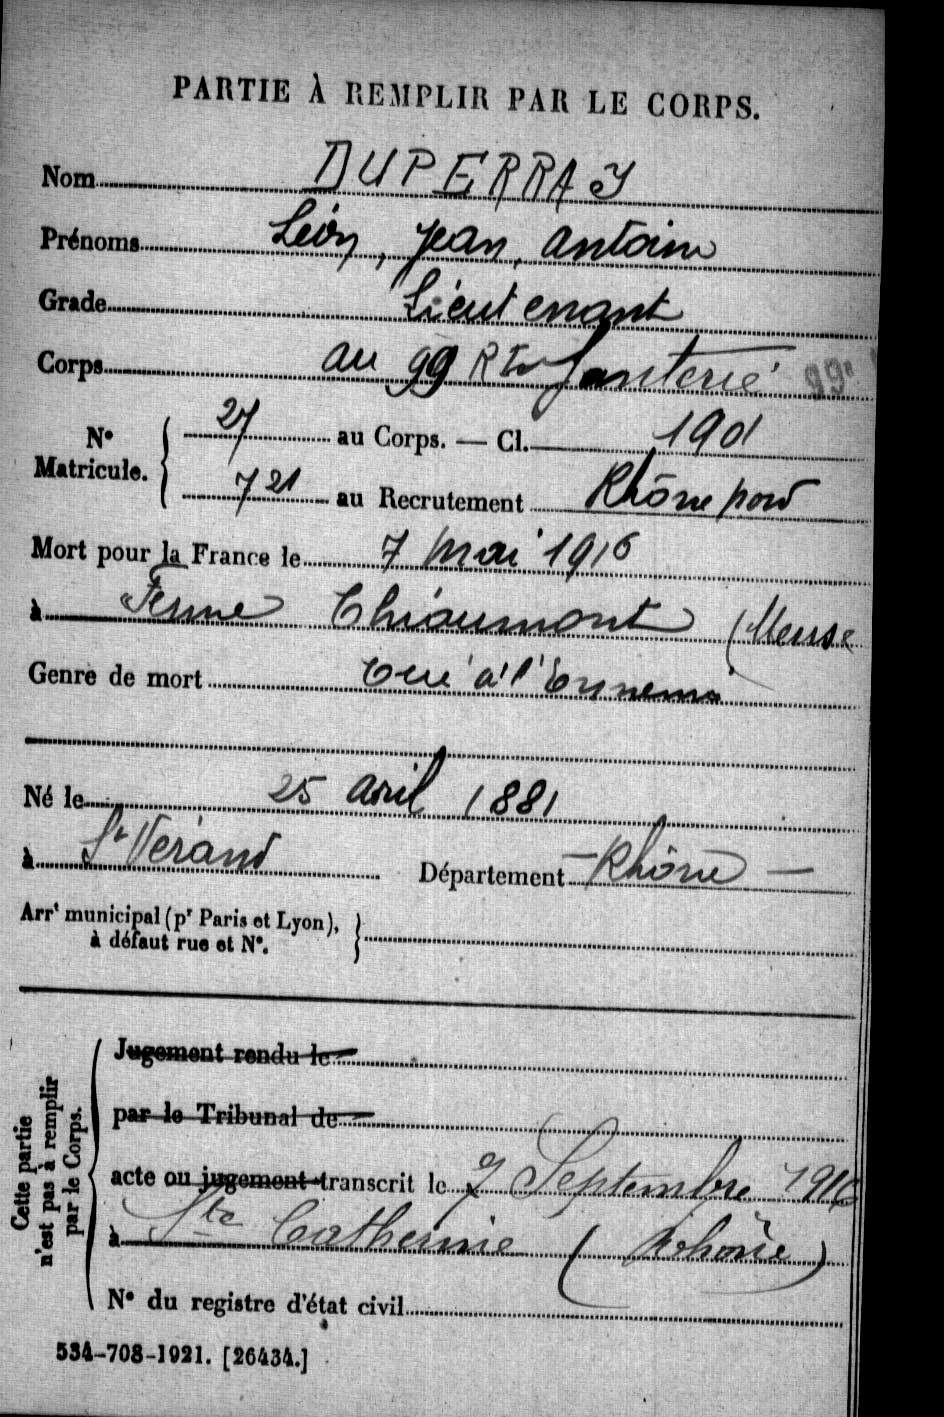 PARTIE À REMPLIR PAR LE CORPS.
Nom DUPERRAY
Prénoms Léon, Jean, Antoine
Grade Lieutenant
Corps au 99 Rt Infanterie 99e
N° Matricule. 27 au Corps. — Cl. 1901
721 au Recrutement Rhône nord
Mort pour la France le 7 mai 1916
à Ferme Thiaumont (Meuse
Genre de mort Tué à l'Ennemi
Né le 25 avril 1881
à St Vérand Département - Rhône -
Arrt municipal (pr Paris et Lyon),
à défaut rue et N°.
Cette partie n'est pas à remplir par le Corps.
Jugement rendu le
par le Tribunal de
acte ou jugement transcrit le 7 Septembre 1916
à Ste Catherine (Rhône)
N° du registre d'état civil
534-708-1921. [26434.]